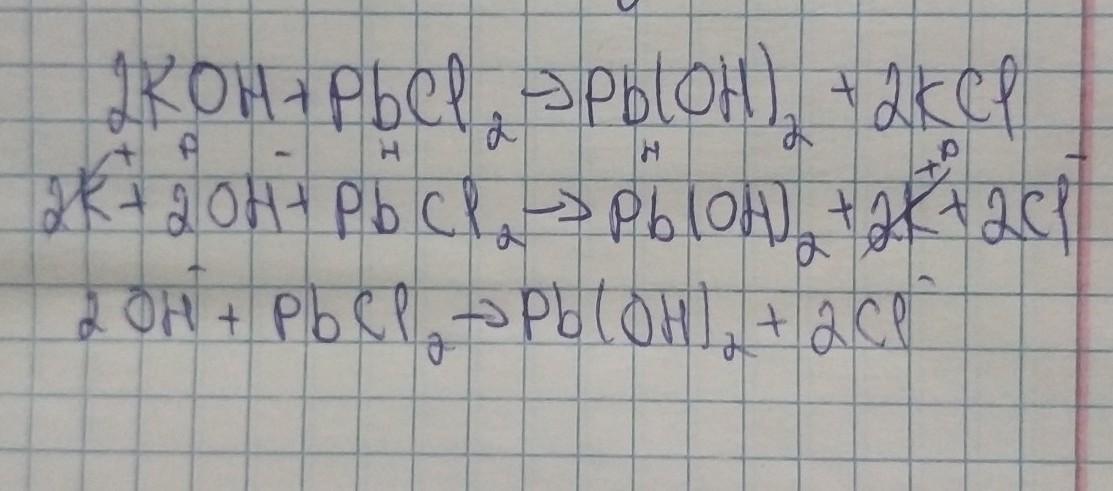 2KOH + PbCl₂ → Pb(OH)₂ + 2KCl
р н н р
2K⁺ + 2OH⁻ + PbCl₂ → Pb(OH)₂ + 2K⁺ + 2Cl⁻
2OH⁻ + PbCl₂ → Pb(OH)₂ + 2Cl⁻